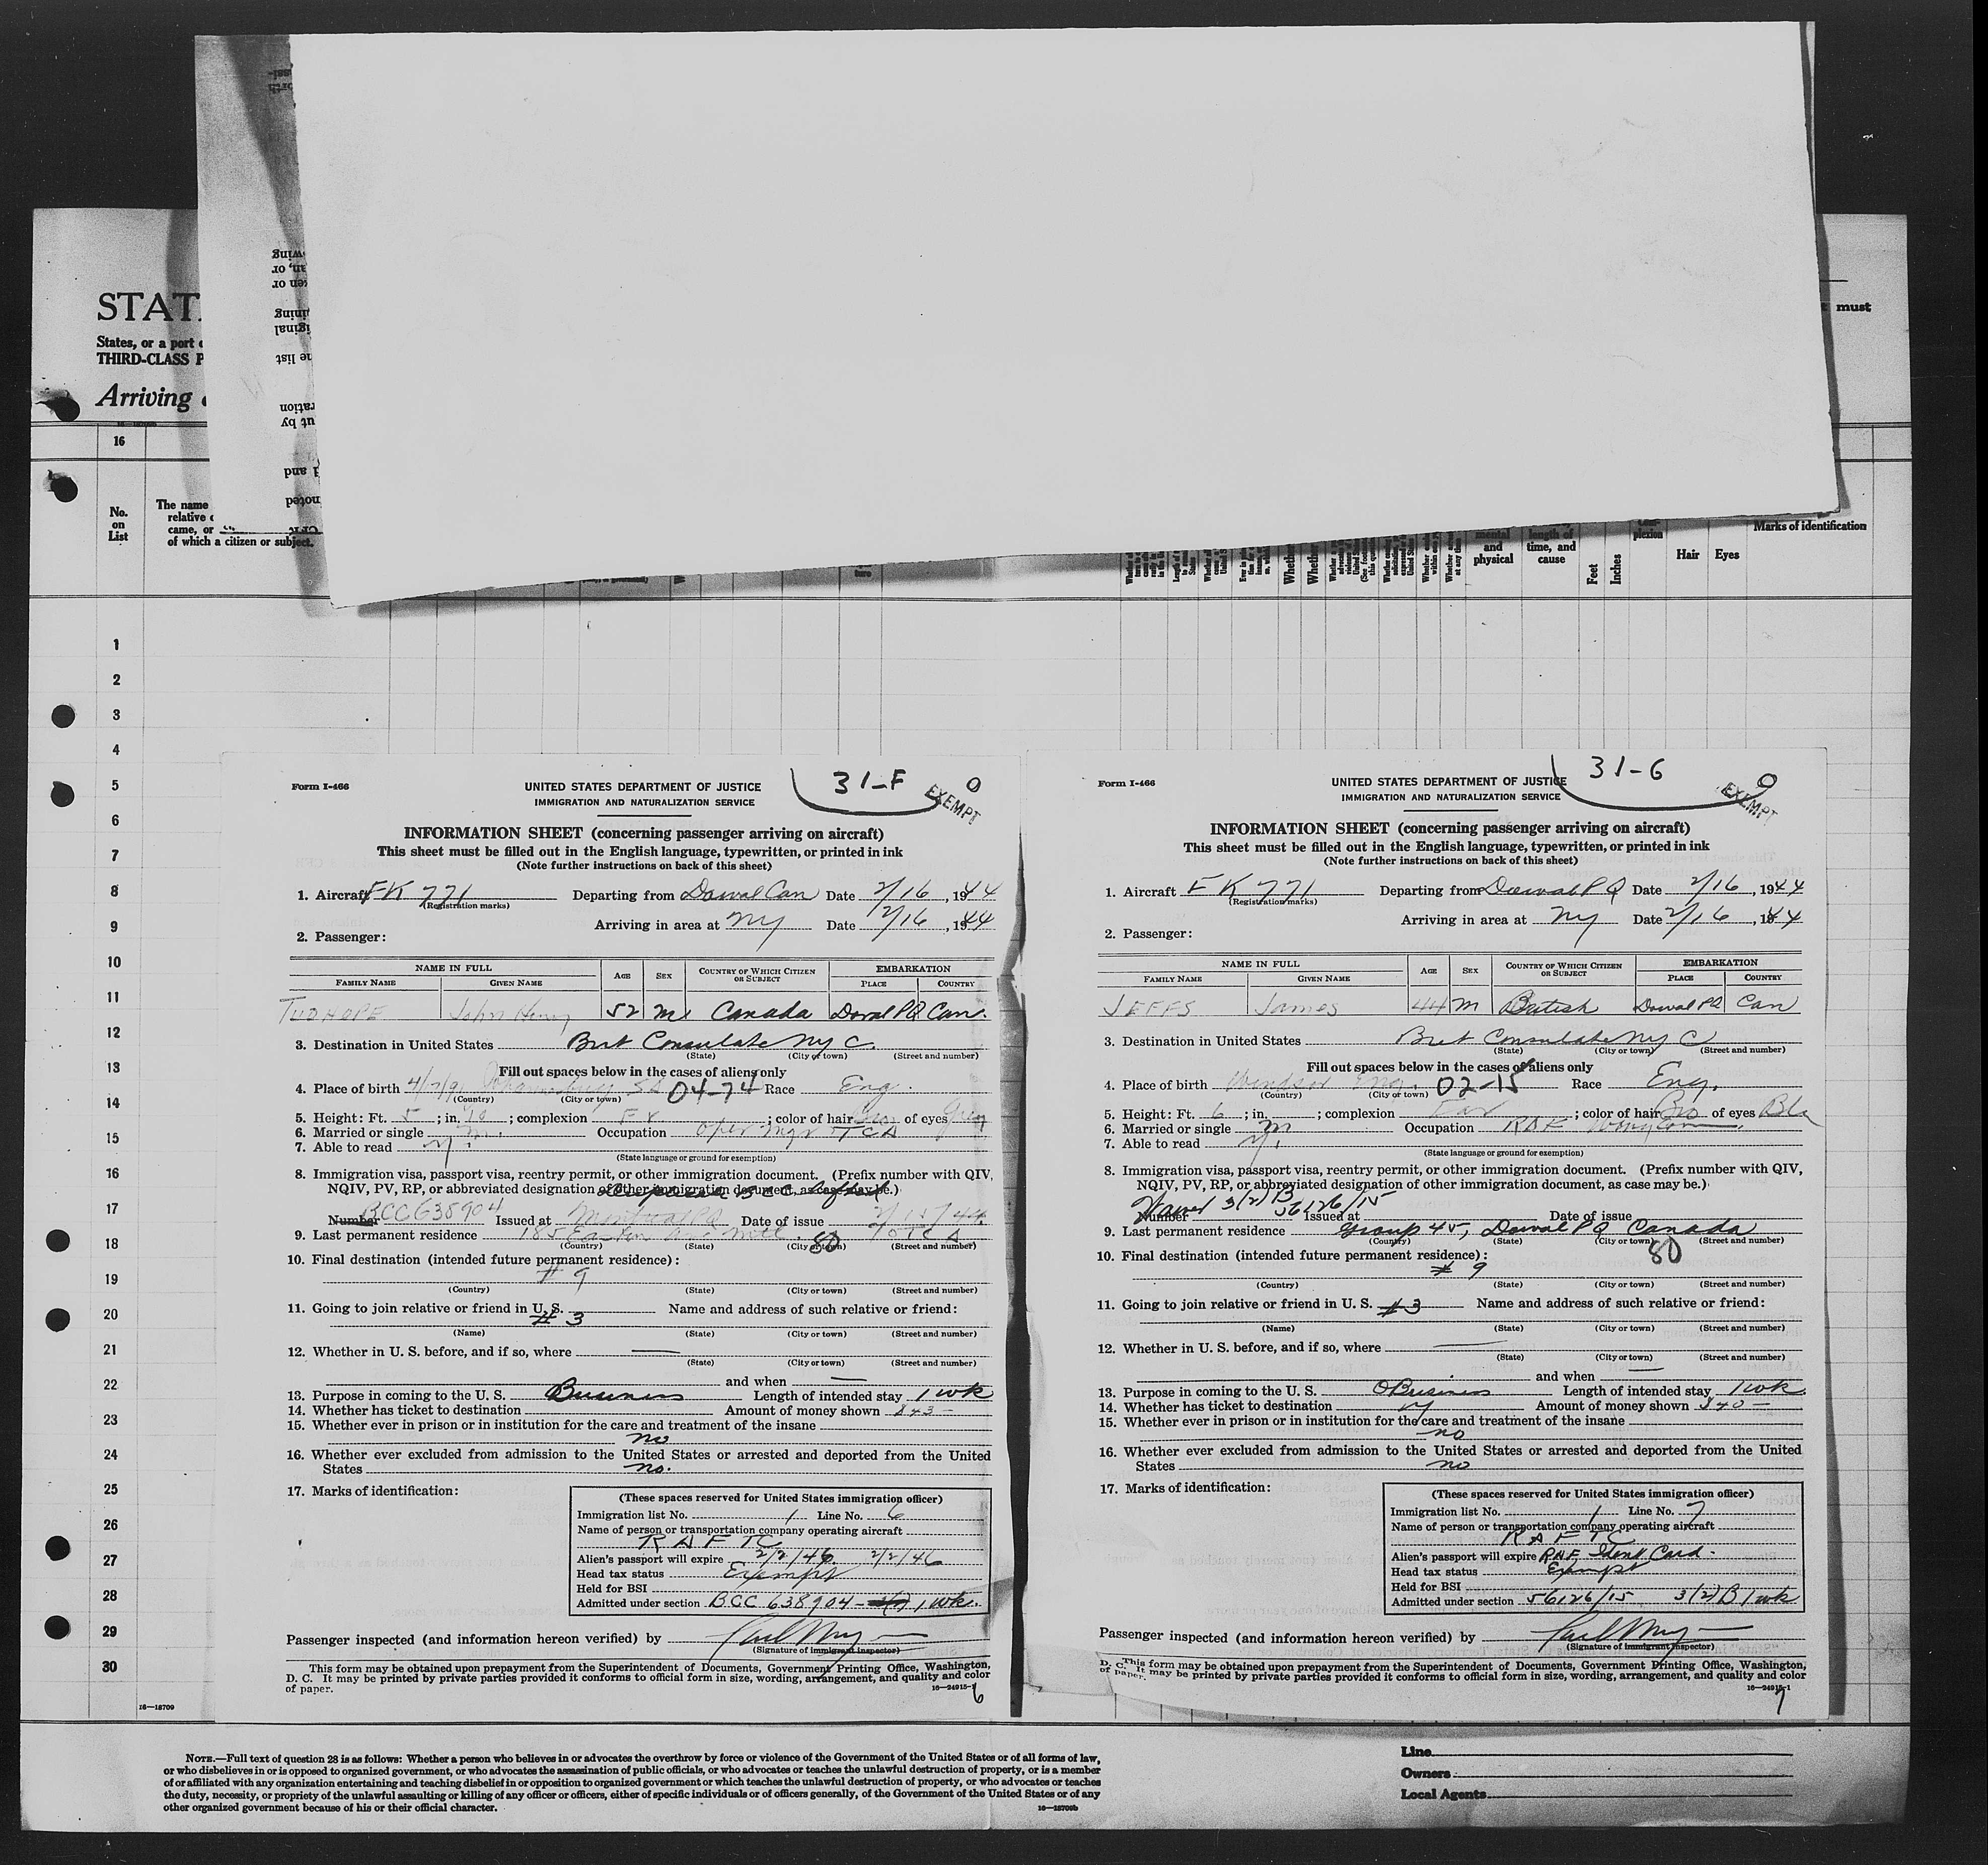 STAT
States, or a port
THIRD-CLASS P
Arriving
must
16
No.
on
List
The name
relative
came, or
of which a citizen or subject.
mental
and
physical
length of
time, and
cause
Feet
Inches
Hair
Eyes
Marks of identification
1
2
3
4
5
6
7
8
9
10
11
12
13
14
15
16
17
18
19
20
21
22
23
24
25
26
27
28
29
30
16—18709
Form I-466
31-F
0
EXEMPT
UNITED STATES DEPARTMENT OF JUSTICE
IMMIGRATION AND NATURALIZATION SERVICE
INFORMATION SHEET (concerning passenger arriving on aircraft)
This sheet must be filled out in the English language, typewritten, or printed in ink
(Note further instructions on back of this sheet)
1. Aircraft FK 771 Departing from Dorval Can Date 2/16, 1944
(Registration marks)
Arriving in area at NY Date 2/16, 1944
2. Passenger:
NAME IN FULL AGE SEX COUNTRY OF WHICH CITIZEN OR SUBJECT EMBARKATION
FAMILY NAME GIVEN NAME PLACE COUNTRY
TUDHOPE John Henry 52 M Canada Dorval PQ Can.
3. Destination in United States Brit Consulate NY C.
(State) (City or town) (Street and number)
Fill out spaces below in the cases of aliens only
4. Place of birth 4/7/91 Johannesburg SA 04-74 Race Eng.
(Country) (City or town)
5. Height: Ft. 5; in. 10; complexion Fr; color of hair Brn of eyes Grey
6. Married or single m. Occupation Oper Mgr TCA
7. Able to read y.
(State language or ground for exemption)
8. Immigration visa, passport visa, reentry permit, or other immigration document. (Prefix number with QIV,
NQIV, PV, RP, or abbreviated designation of other immigration document, as case may be.)
Number BCC638904 Issued at Montreal PQ Date of issue 2/15/44
9. Last permanent residence 185 80 TCA
(Country) (State) (City or town) (Street and number)
10. Final destination (intended future permanent residence):
# 9
(Country) (State) (City or town) (Street and number)
11. Going to join relative or friend in U. S. Name and address of such relative or friend:
# 3
(Name) (State) (City or town) (Street and number)
12. Whether in U. S. before, and if so, where —
(State) (City or town) (Street and number)
and when —
13. Purpose in coming to the U. S. Business Length of intended stay 1 wk
14. Whether has ticket to destination Amount of money shown $43 —
15. Whether ever in prison or in institution for the care and treatment of the insane
no
16. Whether ever excluded from admission to the United States or arrested and deported from the United
States no.
17. Marks of identification:
(These spaces reserved for United States immigration officer)
Immigration list No. 1 Line No. 6
Name of person or transportation company operating aircraft
RAFTC
Alien's passport will expire 2/2/46 2/2/46
Head tax status Exempt
Held for BSI
Admitted under section BCC 638904 — 1 wk.
Passenger inspected (and information hereon verified) by
(Signature of immigrant inspector)
This form may be obtained upon prepayment from the Superintendent of Documents, Government Printing Office, Washington,
D. C. It may be printed by private parties provided it conforms to official form in size, wording, arrangement, and quality and color
of paper.
16—24915-1
6
Form I-466
31-G
0
EXEMPT
UNITED STATES DEPARTMENT OF JUSTICE
IMMIGRATION AND NATURALIZATION SERVICE
INFORMATION SHEET (concerning passenger arriving on aircraft)
This sheet must be filled out in the English language, typewritten, or printed in ink
(Note further instructions on back of this sheet)
1. Aircraft FK 771 Departing from Dorval PQ Date 2/16, 1944
(Registration marks)
Arriving in area at NY Date 2/16, 1944
2. Passenger:
NAME IN FULL AGE SEX COUNTRY OF WHICH CITIZEN OR SUBJECT EMBARKATION
FAMILY NAME GIVEN NAME PLACE COUNTRY
JEFFS James 44 M British Dorval PQ Can
3. Destination in United States Brit Consulate NY C
(State) (City or town) (Street and number)
Fill out spaces below in the cases of aliens only
4. Place of birth Windsor Eng. 02-15 Race Eng.
(Country) (City or town)
5. Height: Ft. 6; in.; complexion Fair; color of hair Bro of eyes Blu
6. Married or single m Occupation RAF Wing Comm.
7. Able to read y.
(State language or ground for exemption)
8. Immigration visa, passport visa, reentry permit, or other immigration document. (Prefix number with QIV,
NQIV, PV, RP, or abbreviated designation of other immigration document, as case may be.)
Waiver 3(2)B 56126/15
Number Issued at Date of issue
9. Last permanent residence Group 45, Dorval PQ Canada
(Country) (State) (City or town) (Street and number)
80
10. Final destination (intended future permanent residence):
# 9
(Country) (State) (City or town) (Street and number)
11. Going to join relative or friend in U. S. #3 Name and address of such relative or friend:
(Name) (State) (City or town) (Street and number)
12. Whether in U. S. before, and if so, where —
(State) (City or town) (Street and number)
and when —
13. Purpose in coming to the U. S. Business Length of intended stay 1 wk
14. Whether has ticket to destination y Amount of money shown $40 —
15. Whether ever in prison or in institution for the care and treatment of the insane
no
16. Whether ever excluded from admission to the United States or arrested and deported from the United
States no
17. Marks of identification:
(These spaces reserved for United States immigration officer)
Immigration list No. 1 Line No. 7
Name of person or transportation company operating aircraft
RAFTC
Alien's passport will expire RAF Ident Card.
Head tax status Exempt
Held for BSI
Admitted under section 56126/15 3(2)B 1 wk
Passenger inspected (and information hereon verified) by
(Signature of immigrant inspector)
This form may be obtained upon prepayment from the Superintendent of Documents, Government Printing Office, Washington,
D. C. It may be printed by private parties provided it conforms to official form in size, wording, arrangement, and quality and color
of paper.
16—24915-1
7
NOTE.—Full text of question 28 is as follows: Whether a person who believes in or advocates the overthrow by force or violence of the Government of the United States or of all forms of law,
or who disbelieves in or is opposed to organized government, or who advocates the assassination of public officials, or who advocates or teaches the unlawful destruction of property, or is a member
of or affiliated with any organization entertaining and teaching disbelief in or opposition to organized government or which teaches the unlawful destruction of property, or who advocates or teaches
the duty, necessity, or propriety of the unlawful assaulting or killing of any officer or officers, either of specific individuals or of officers generally, of the Government of the United States or of any
other organized government because of his or their official character.
16—18709b
Line
Owners
Local Agents